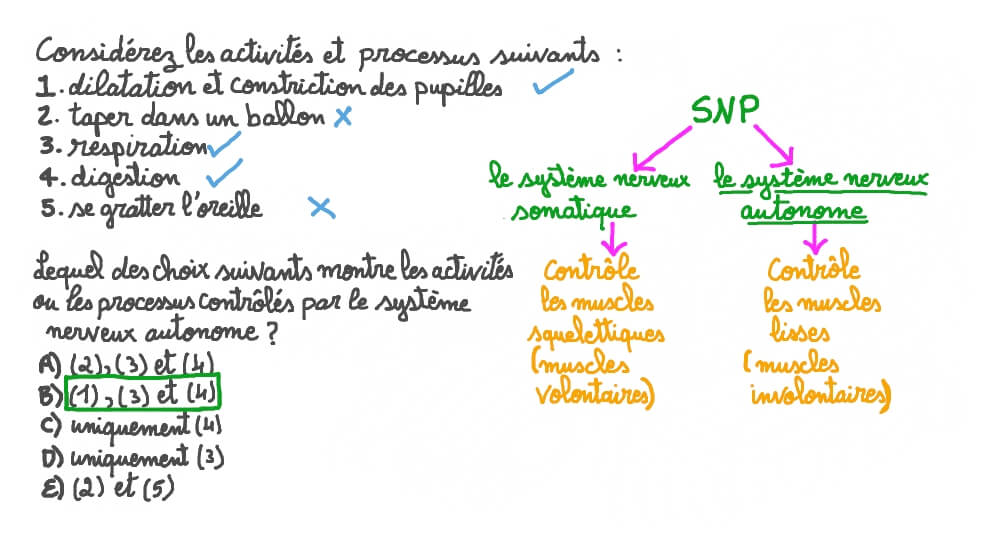 Considérez les activités et processus suivants :
1. dilatation et constriction des pupilles
2. taper dans un ballon
3. respiration
4. digestion
5. se gratter l'oreille
Lequel des choix suivants montre les activités
ou les processus contrôlés par le système
nerveux autonome ?
A) (2), (3) et (4)
B) (1), (3) et (4)
C) uniquement (4)
D) uniquement (3)
E) (2) et (5)
SNP
le système nerveux
somatique
Contrôle
les muscles
squelettiques
(muscles
volontaires)
le système nerveux
autonome
Contrôle
les muscles
lisses
(muscles
involontaires)